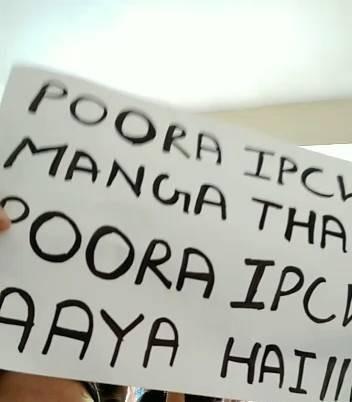 POORA IPCW
MANGA THA
POORA IPCW
AAYA HAI!!!